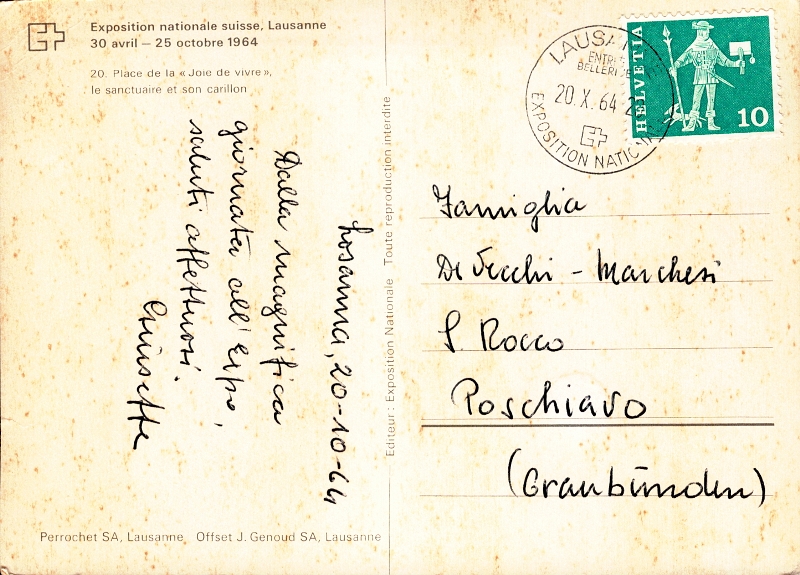 Exposition nationale suisse, Lausanne
30 avril – 25 octobre 1964
20. Place de la «Joie de vivre»,
le sanctuaire et son carillon
Losanna, 20-10-64
Dalla magnifica
giornata all'Expo,
saluti affettuosi.
Giusette
Editeur: Exposition Nationale Toute reproduction interdite
LAUSA
ENTR
BELLERI
20.X.64
EXPOSITION NATION
HELVETIA
10
Famiglia
De Vecchi - Marchesi
S. Rocco
Poschiavo
(Graubünden)
Perrochet SA, Lausanne Offset J. Genoud SA, Lausanne